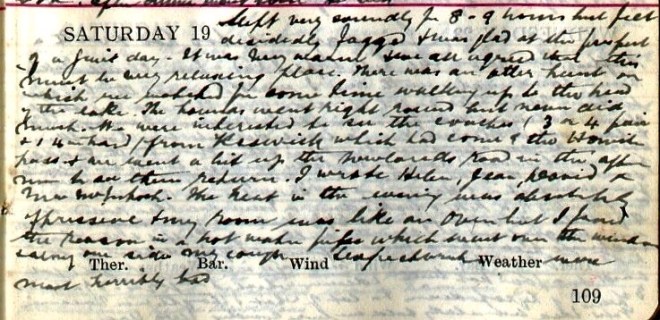 SATURDAY 19 Slept very soundly for 8 - 9 hours but felt
decidedly fagged & was glad at the prospect
of a quiet day. It was very warm & we all agreed that this
must be very relaxing place. There was an otter hunt on
which we watched for some time walking up to the head
of the lake. The hounds went right round but never did
much. We were interested to see the coaches (3 or 4 pair
& 1 4-hand) from Keswick which had come by the Honister
pass & we went a bit up the Newlands road in the after
noon to see them return. I wrote Helen, Jean,
Mrs McIntosh. The heat in the evening was absolutely
oppressive & my room was like an oven but I found
the reason in a hot water pipe which went over the window
& along one side my cough
Ther. Bar. Wind Weather
most horribly bad
109